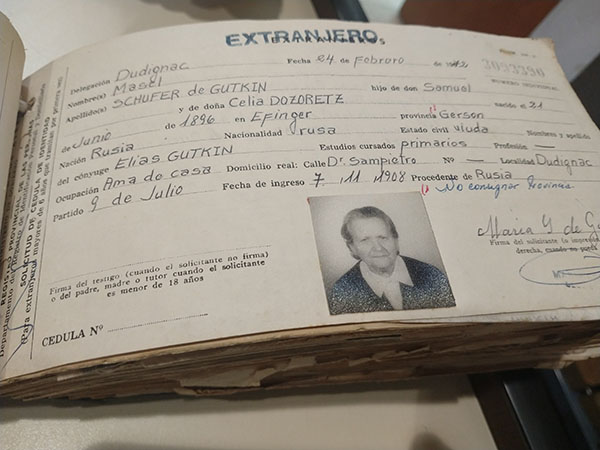 EXTRANJERO
Delegación Dudignac Fecha 24 de Febrero de 19
Nombre(s) Masel hijo de don Samuel
Apellido(s) SCHUFER de GUTKIN y de doña Celia DOZORETZ nacido el 21
de Junio de 1896 en Efinger provincia Gerson
Nación Rusia Nacionalidad rusa Estado civil viuda Nombres y apellido
del cónyuge Elias GUTKIN Estudios cursados primarios Profesión —
Ocupación Ama de casa Domicilio real: Calle Dr. Sampietro Nº — Localidad Dudignac
Partido 9 de Julio Fecha de ingreso 7 11 1908 Procedente de Rusia
No consignar Provincia
Maria Y de
Firma del solicitante
derecha, cuando
Firma del testigo (cuando el solicitante no firma)
o del padre, madre o tutor cuando el solicitante
es menor de 18 años
CEDULA Nº
SOLICITUD DE CEDULA DE IDENTIDAD
(Para extranjeros mayores de 6 años que tramitan por primera vez)